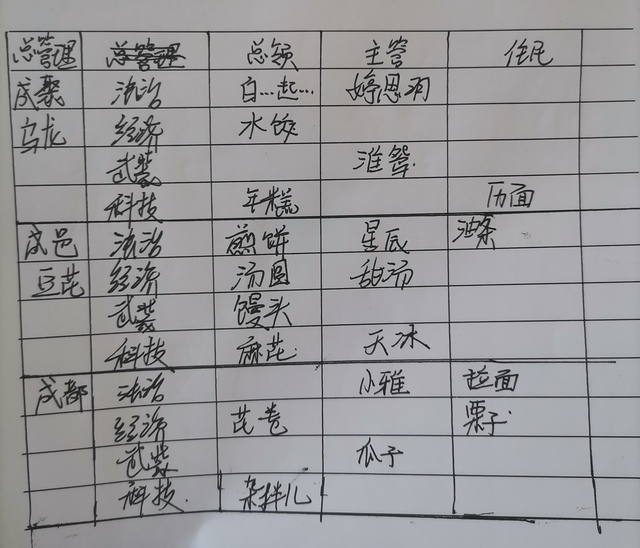 总管理 总管理 总领 主管 住民
成聚 法治 白…起… 婷恩羽
乌龙 经济 水饺
武装 淮
科技 年糕 历面
成邑 法治 煎饼 星辰 油条
豆花 经济 汤圆 甜汤
武装 馒头
科技 麻花 天冰
成都 法治 小雅 拉面
经济 花卷 栗子
武装 瓜子
科技 杂拌儿